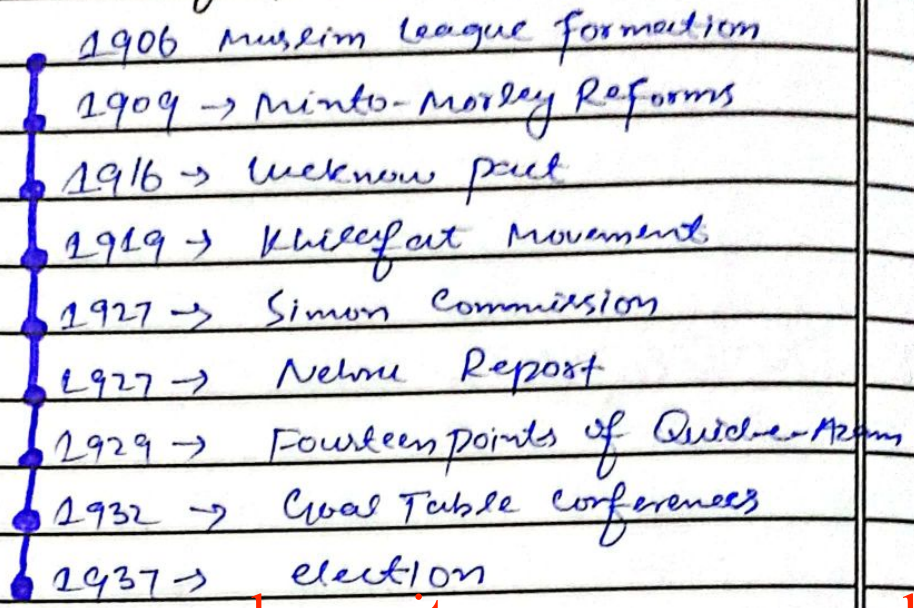 1906 Muslim League formation
1909 → Minto-Morley Reforms
1916 → Lucknow pact
1919 → Khilafat Movement
1927 → Simon Commission
1927 → Nehru Report
1929 → Fourteen points of Quid-e-Azam
1932 → Goal Table Conferences
1937 → election